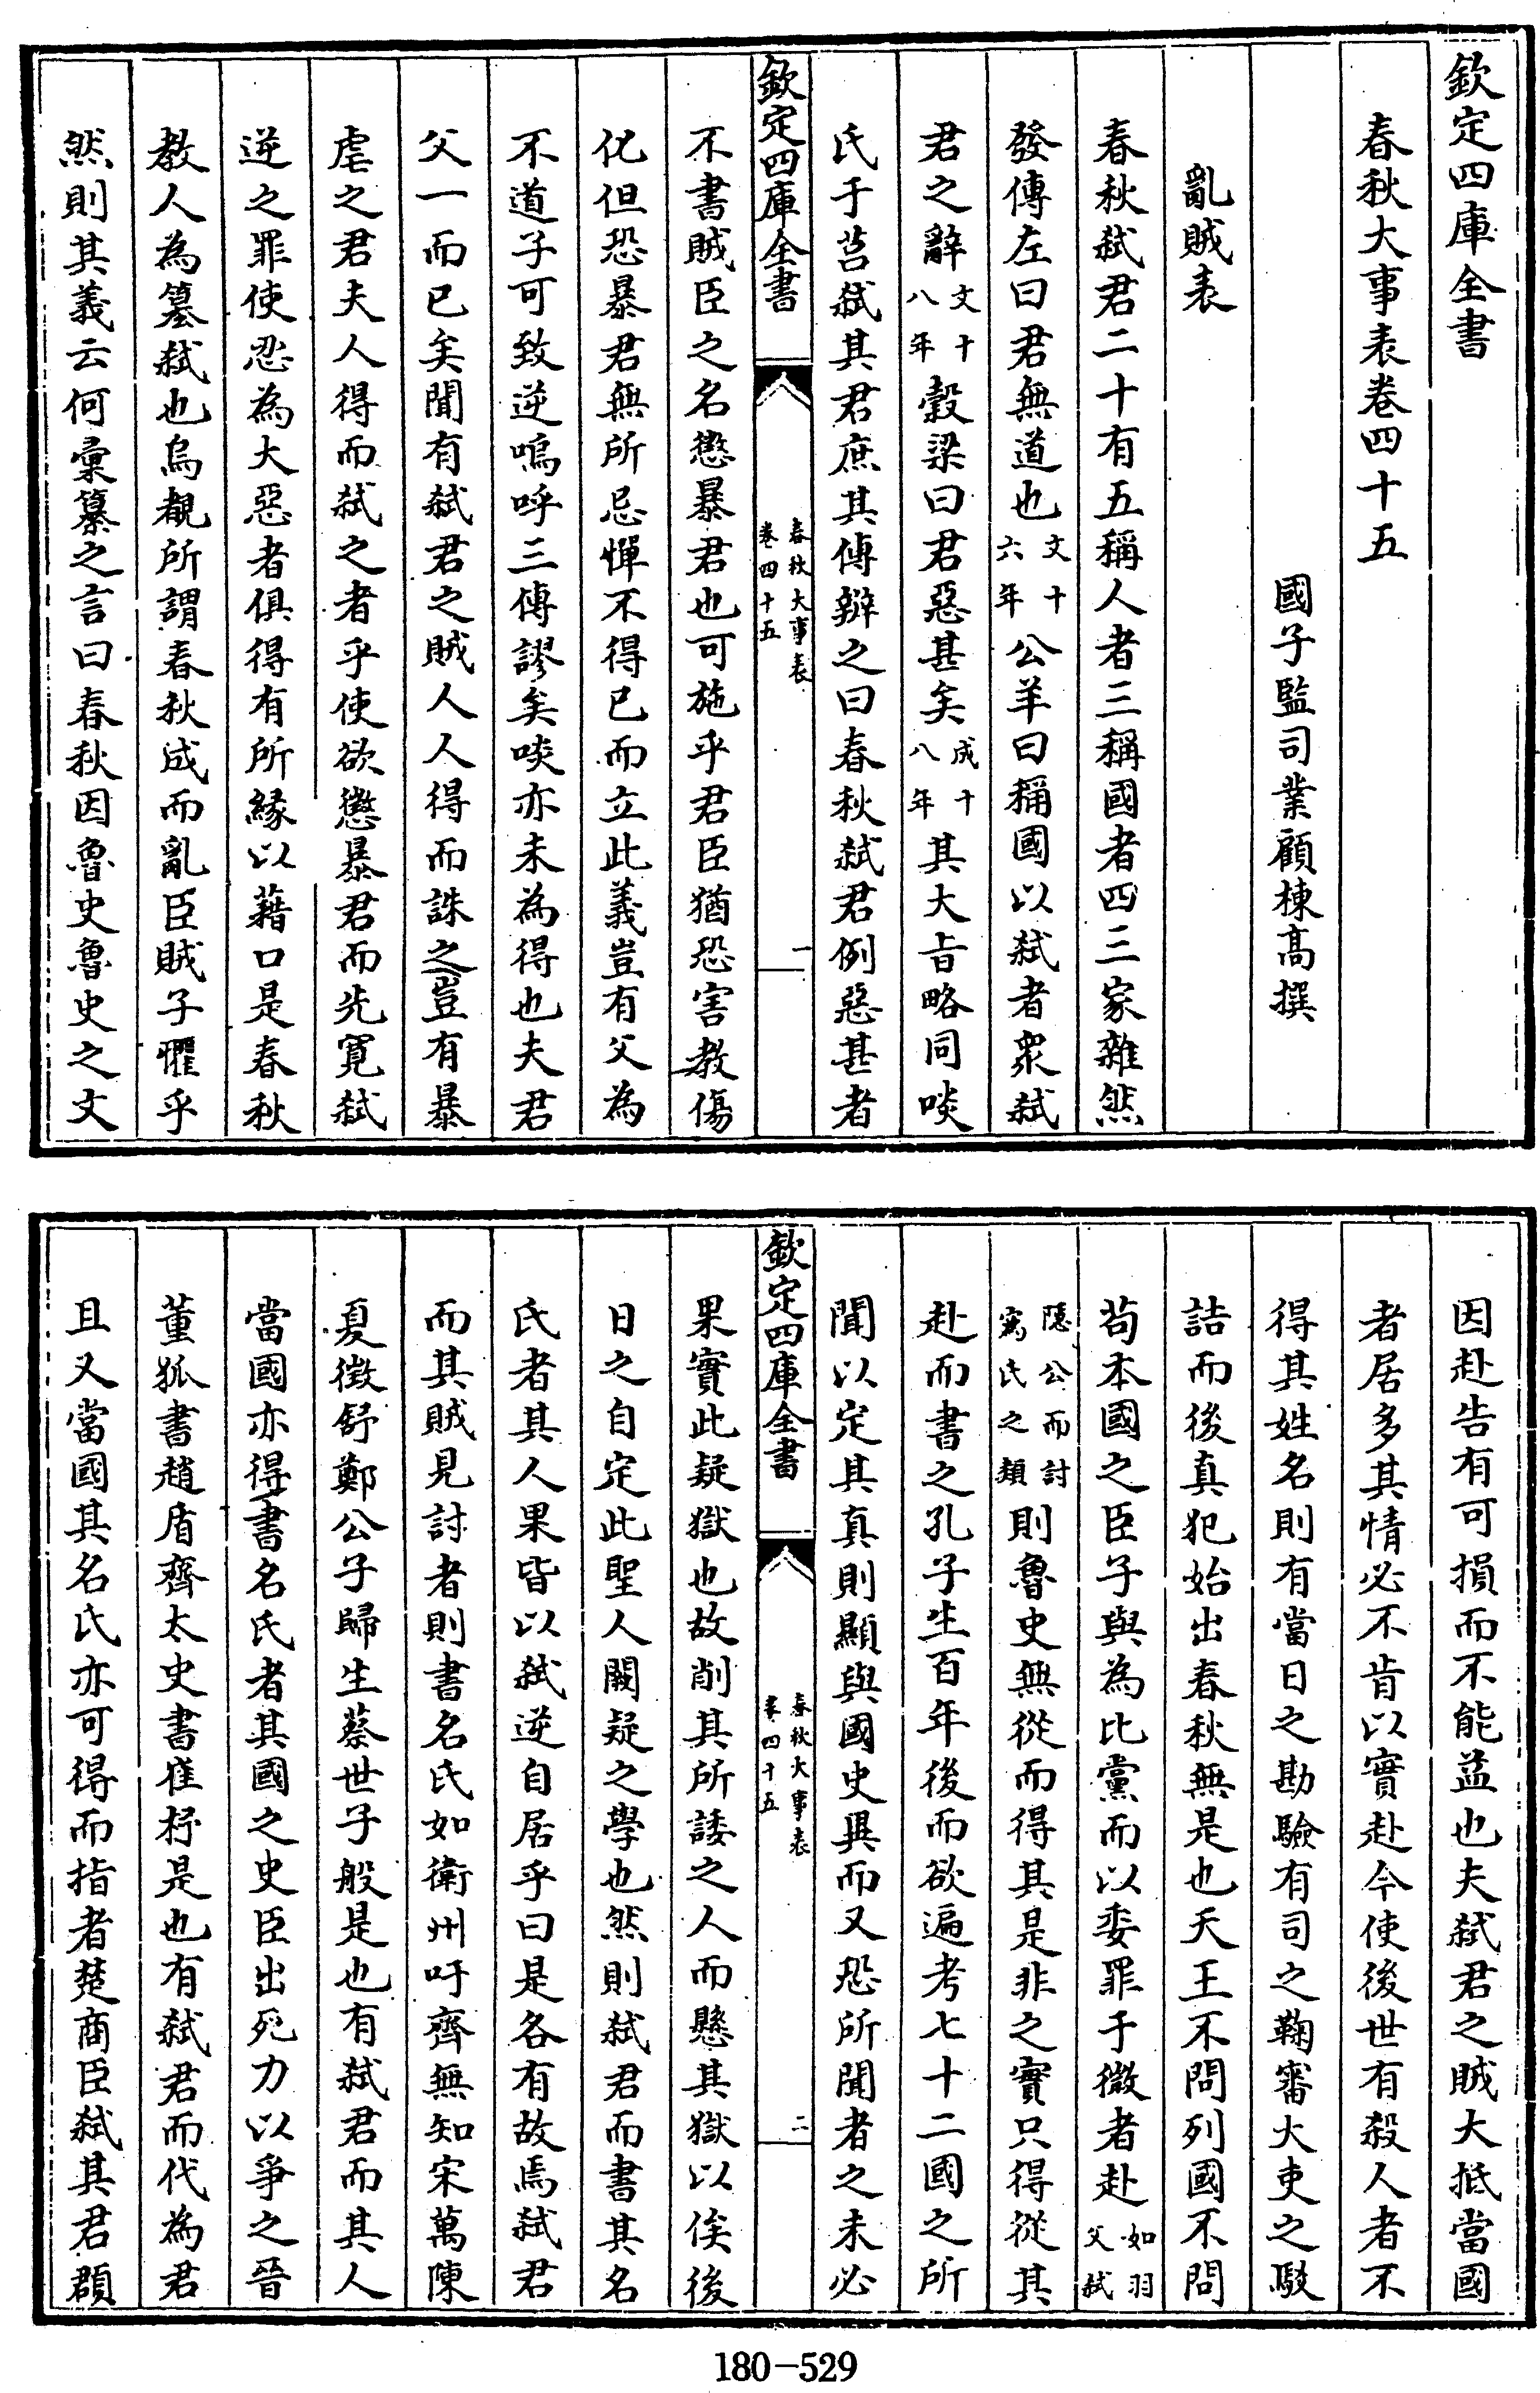 欽定四庫全書
春秋大事表卷四十五
國子監司業顧棟高撰
亂賊表
春秋弑君二十有五稱人者三稱國者四三家雜然
發傳左曰君無道也文十六年公羊曰稱國以弑者衆弑
君之辭文十八年穀梁曰君惡甚矣成十八年其大旨略同啖
氏于莒弑其君庶其傳辨之曰春秋弑君例惡甚者
欽定四庫全書
春秋大事表
卷四十五
一
不書賊臣之名懲暴君也可施乎君臣猶恐害教傷
化但恐暴君無所忌憚不得已而立此義豈有父為
不道子可致逆嗚呼三傳謬矣啖亦未為得也夫君
父一而已矣聞有弑君之賊人人得而誅之豈有暴
虐之君夫人得而弑之者乎使欲懲暴君而先寛弑
逆之罪使忍為大惡者俱得有所縁以藉口是春秋
教人為簒弑也烏覩所謂春秋成而亂臣賊子懼乎
然則其義云何彙纂之言曰春秋因魯史魯史之文
因赴告有可損而不能益也夫弑君之賊大抵當國
者居多其情必不肯以實赴今使後世有殺人者不
得其姓名則有當日之勘驗有司之鞠審大吏之駁
詰而後真犯始出春秋無是也天王不問列國不問
苟本國之臣子與為比黨而以委罪于微者赴如羽父弑
隱公而討寪氏之類則魯史無從而得其是非之實只得從其
赴而書之孔子生百年後而欲遍考七十二國之所
聞以定其真則顯與國史異而又恐所聞者之未必
欽定四庫全書
春秋大事表
卷四十五
二
果實此疑獄也故削其所諉之人而懸其獄以俟後
日之自定此聖人闕疑之學也然則弑君而書其名
氏者其人果皆以弑逆自居乎曰是各有故焉弑君
而其賊見討者則書名氏如衛州吁齊無知宋萬陳
夏徵舒鄭公子歸生蔡世子般是也有弑君而其人
當國亦得書名氏者其國之史臣出死力以爭之晉
董狐書趙盾齊太史書崔杼是也有弑君而代為君
且又當國其名氏亦可得而指者楚商臣弑其君頵
180-529